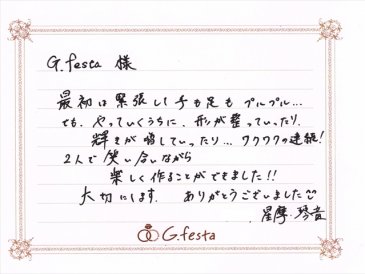 G.festa 様
最初は緊張して手も足もプルプル...
でも、やっていくうちに、形が整っていったり、
輝きが増していったり...ワクワクの連続!
2人で笑い合いながら
楽しく作ることができました!!
大切にします。ありがとうございました
G.festa